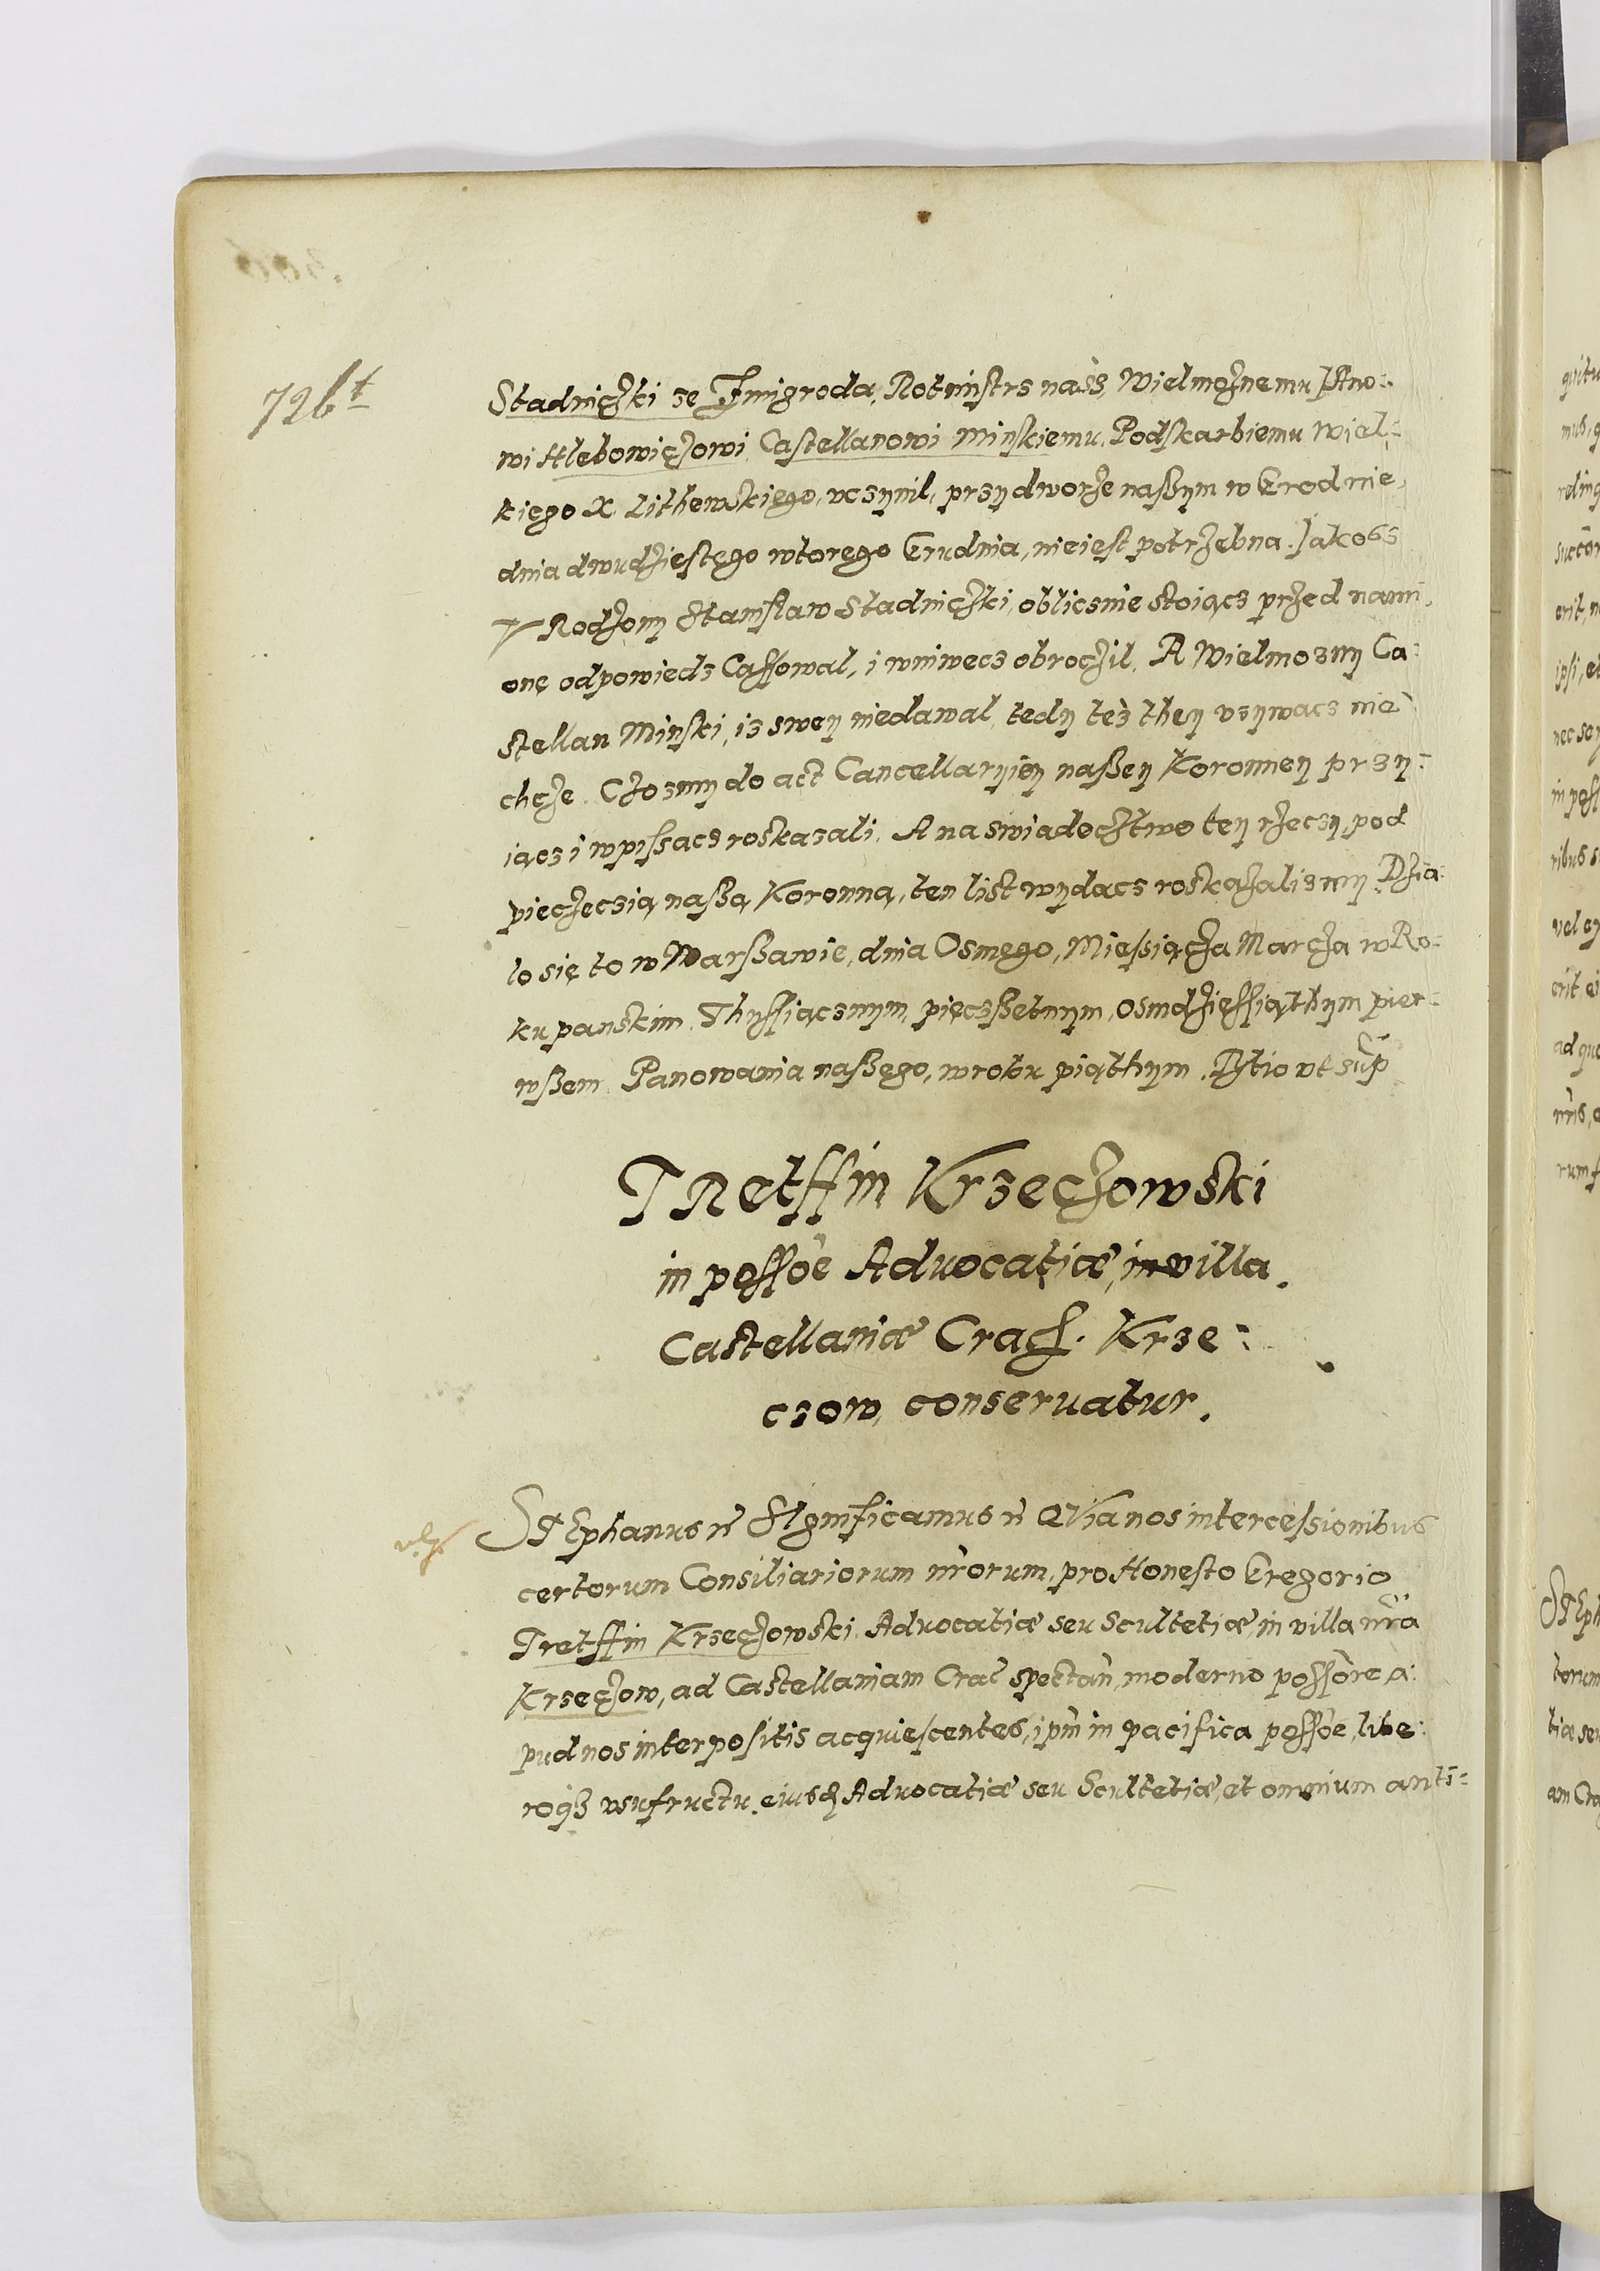 726t
Stadniczki ze Zmigroda, Rotmistrz nasz, Wielmożnemu Jano-
wi Hlebowiczowi Castellanowi Minskiemu, Podskarbiemu Wiel-
kiego X Lithewskiego, vczynil, przy dworze naszym w Grodnie,
dnia dwudziestego wtorego Grudnia, nieiest potrzebna. Jakosz
Vrodzony Stanislaw Stadniczki, oblicznie stoiącz przed nami,
onę odpowiedz Cassowal, i wniwecz obroczil, A Wielmozny Ca-
stellan Minski, iz swey niedawal, tedy też they vzywacz nie
chcze. Czosmy do act Cancellaryiey naszey Koronney przy-
iącz i wpissacz roskazali. A na swiadecztwo tey rzeczy, pod
pieczeczią naszą Koronną, ten list wydacz roskazalismy. Dzia-
lo się to w Warszawie, dnia Osmego, Miesiącza Marcza w Ro-
ku panskim, Thysiącznym, pięczsetnym, osmdziessiąthym pier-
wszem. Panowania naszego, w roku piąthym. Rlatio vt sup
TRetffin Krzeczowski
in possoe Advocatiæ, in villa
Castellaniæ Crac. Krze-
czow, conseruatur.
STEphanus rc Significamus rc QVia nos intercessionibus
certorum Consiliariorum nrorum, pro Honesto Gregorio
Tretffin Krzeczowski, Advocatiæ seu Scultetiæ, in villa nra
Krzeczow, ad Castellaniam Crac spectan, moderno possore a-
pud nos interpositis acquiescentes, ipm in pacifica possoe, libe-
roqz vsufructu, eiusd Advocatiæ seu Scultetiæ, et omnium atti-